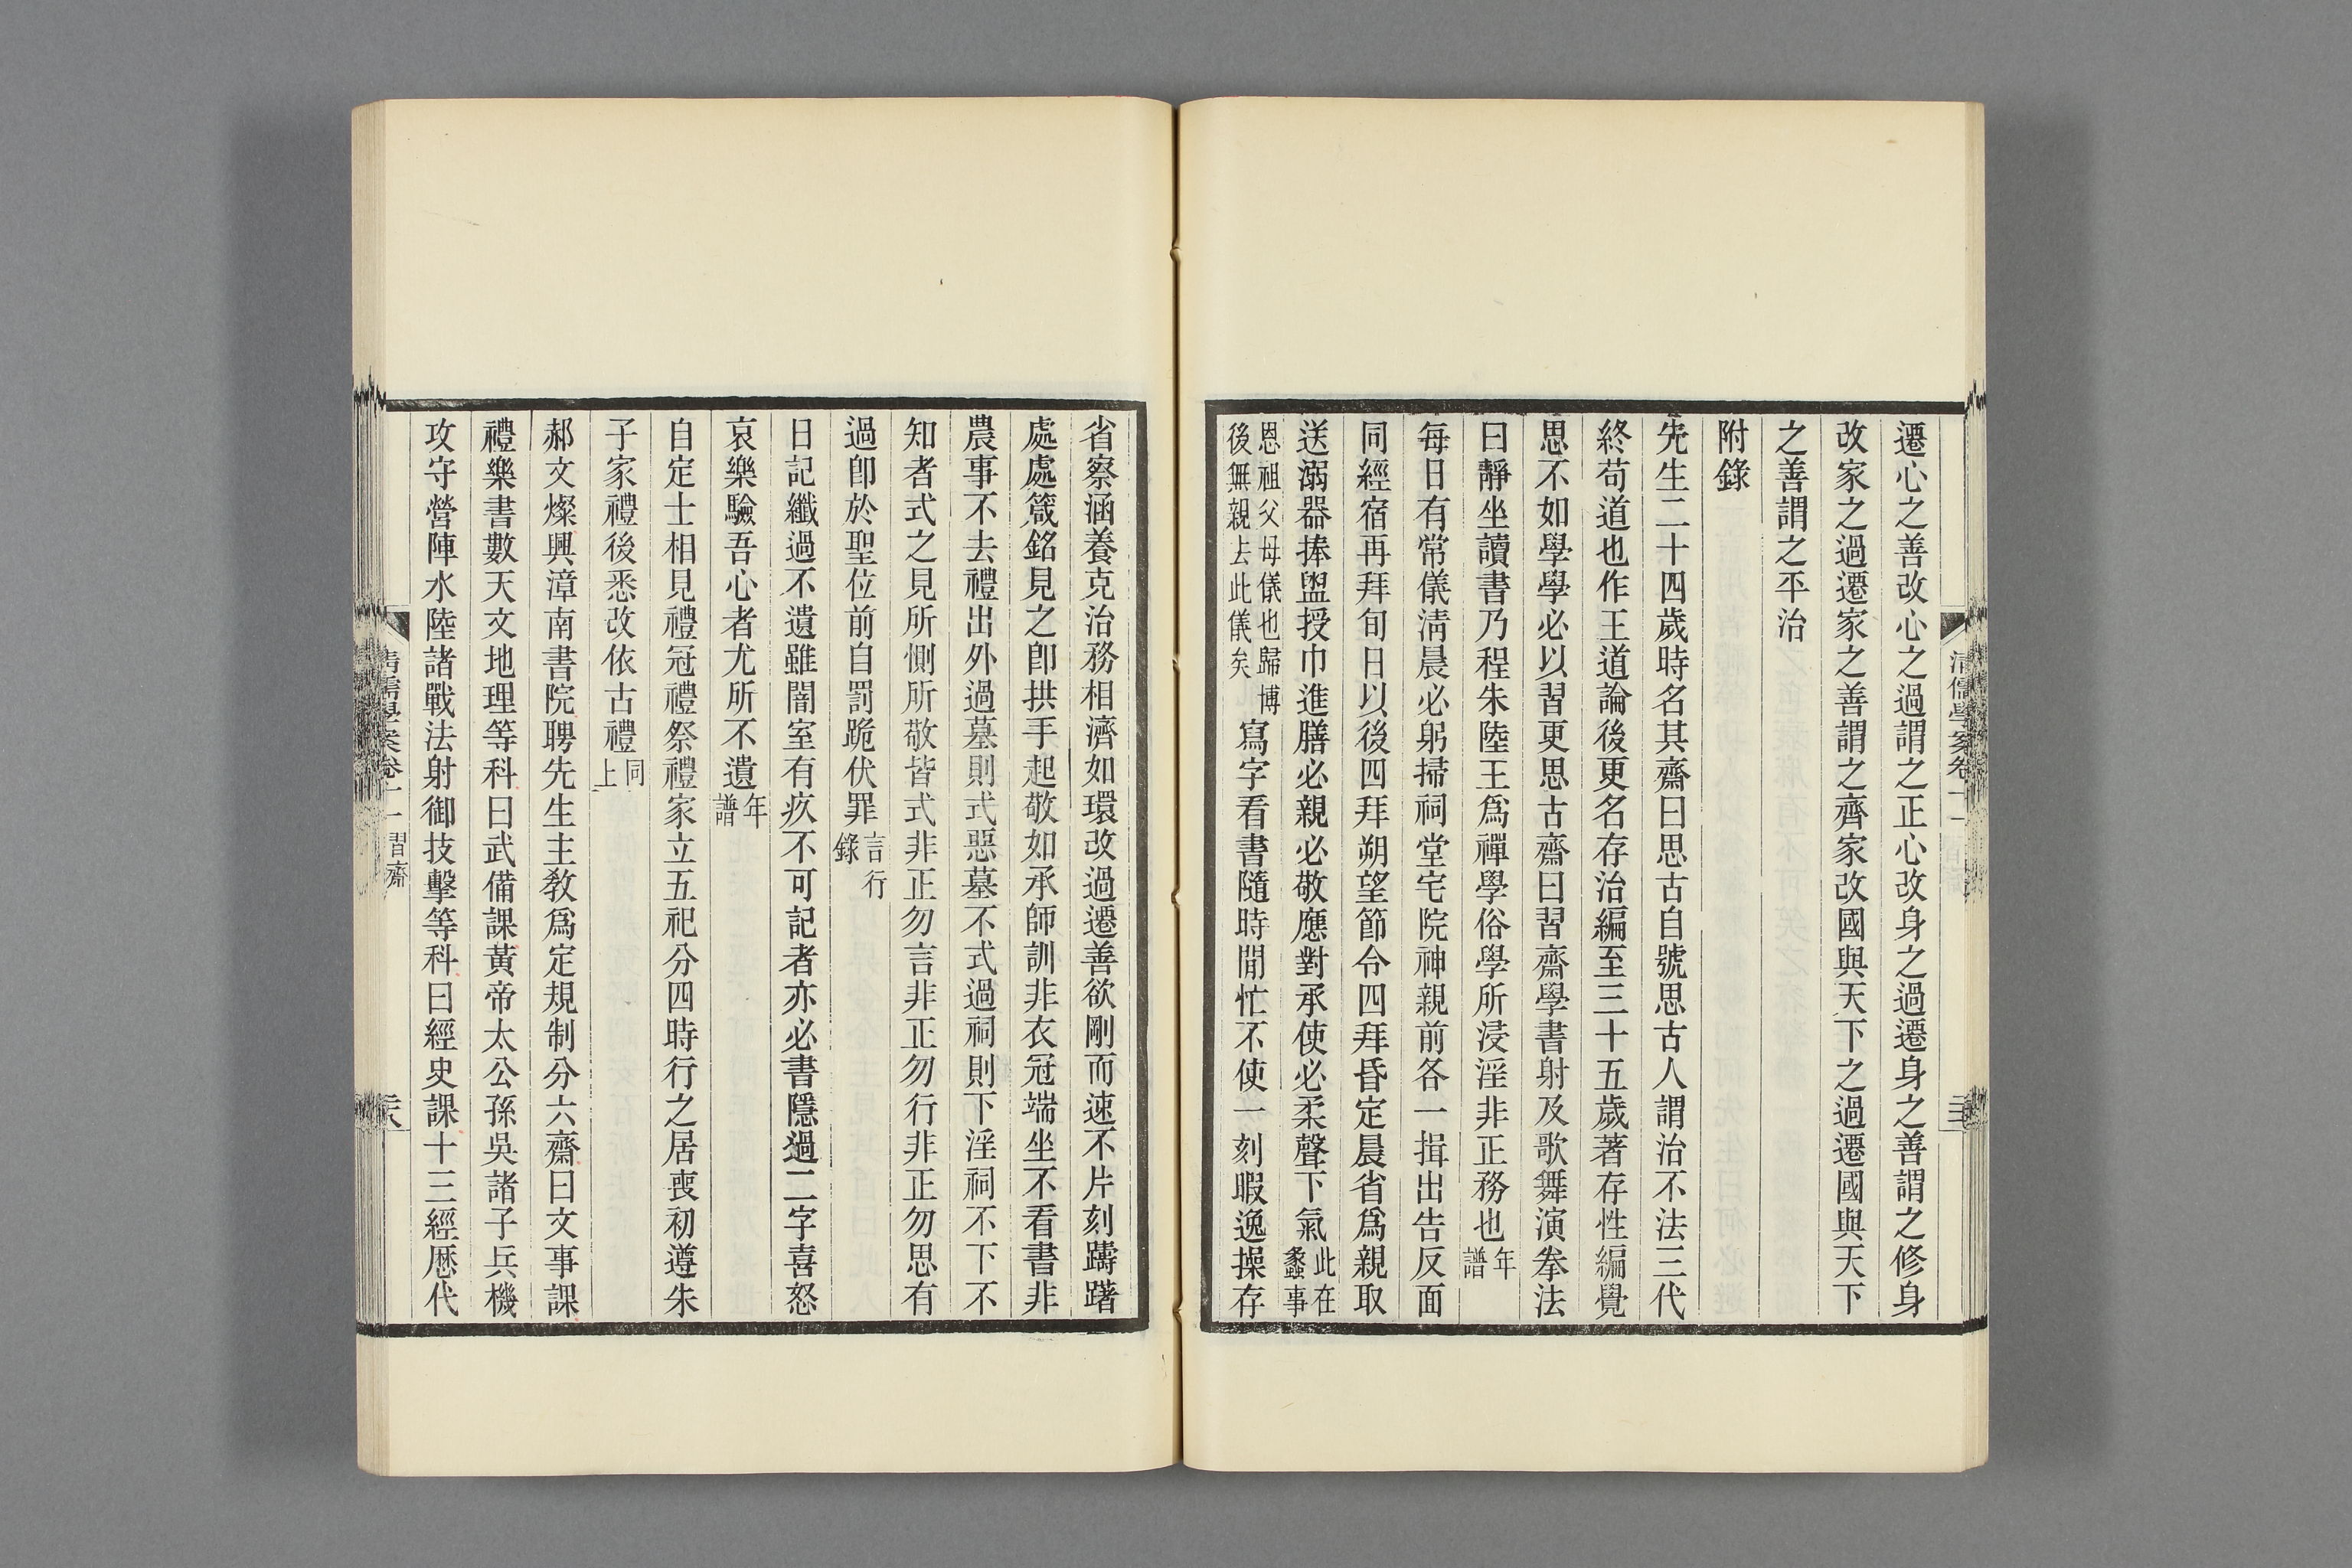 遷心之善改心之過謂之正心改身之過遷身之善謂之修身
改家之過遷家之善謂之齊家改國與天下之過遷國與天下
之善謂之平治
附錄
先生二十四歲時名其齋曰思古自號思古人謂治不法三代
終苟道也作王道論後更名存治編至三十五歲著存性編覺
思不如學學必以習更思古齋曰習齋學書射及歌舞演拳法
曰靜坐讀書乃程朱陸王爲禪學俗學所浸淫非正務也年譜
每日有常儀淸晨必躬掃祠堂宅院神親前各一揖出告反面
同經宿再拜旬日以後四拜朔望節令四拜昏定晨省爲親取
送溺器捧盥授巾進膳必親必敬應對承使必柔聲下氣此在蠡事
恩祖父母儀也歸博後無親去此儀矣寫字看書隨時閒忙不使一刻暇逸操存
省察涵養克治務相濟如環改過遷善欲剛而速不片刻躊躇
處處箴銘見之卽拱手起敬如承師訓非衣冠端坐不看書非
農事不去禮出外過墓則式惡墓不式過祠則下淫祠不下不
知者式之見所惻所敬皆式非正勿言非正勿行非正勿思有
過卽於聖位前自罰跪伏罪言行錄
日記纖過不遺雖闇室有疚不可記者亦必書隱過二字喜怒
哀樂驗吾心者尤所不遺年譜
自定士相見禮冠禮祭禮家立五祀分四時行之居喪初遵朱
子家禮後悉改依古禮同上
郝文燦興漳南書院聘先生主敎爲定規制分六齋曰文事課
禮樂書數天文地理等科曰武備課黃帝太公孫吳諸子兵機
攻守營陣水陸諸戰法射御技擊等科曰經史課十三經歷代
淸儒學案卷十一 習齋